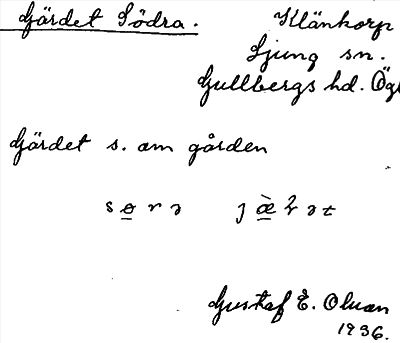 Gärdet Södra.
Klänkorp
Ljung sn.
Gullbergs hd. Ög
Gärdet s. om gården
Gustaf E. Olson
1936.